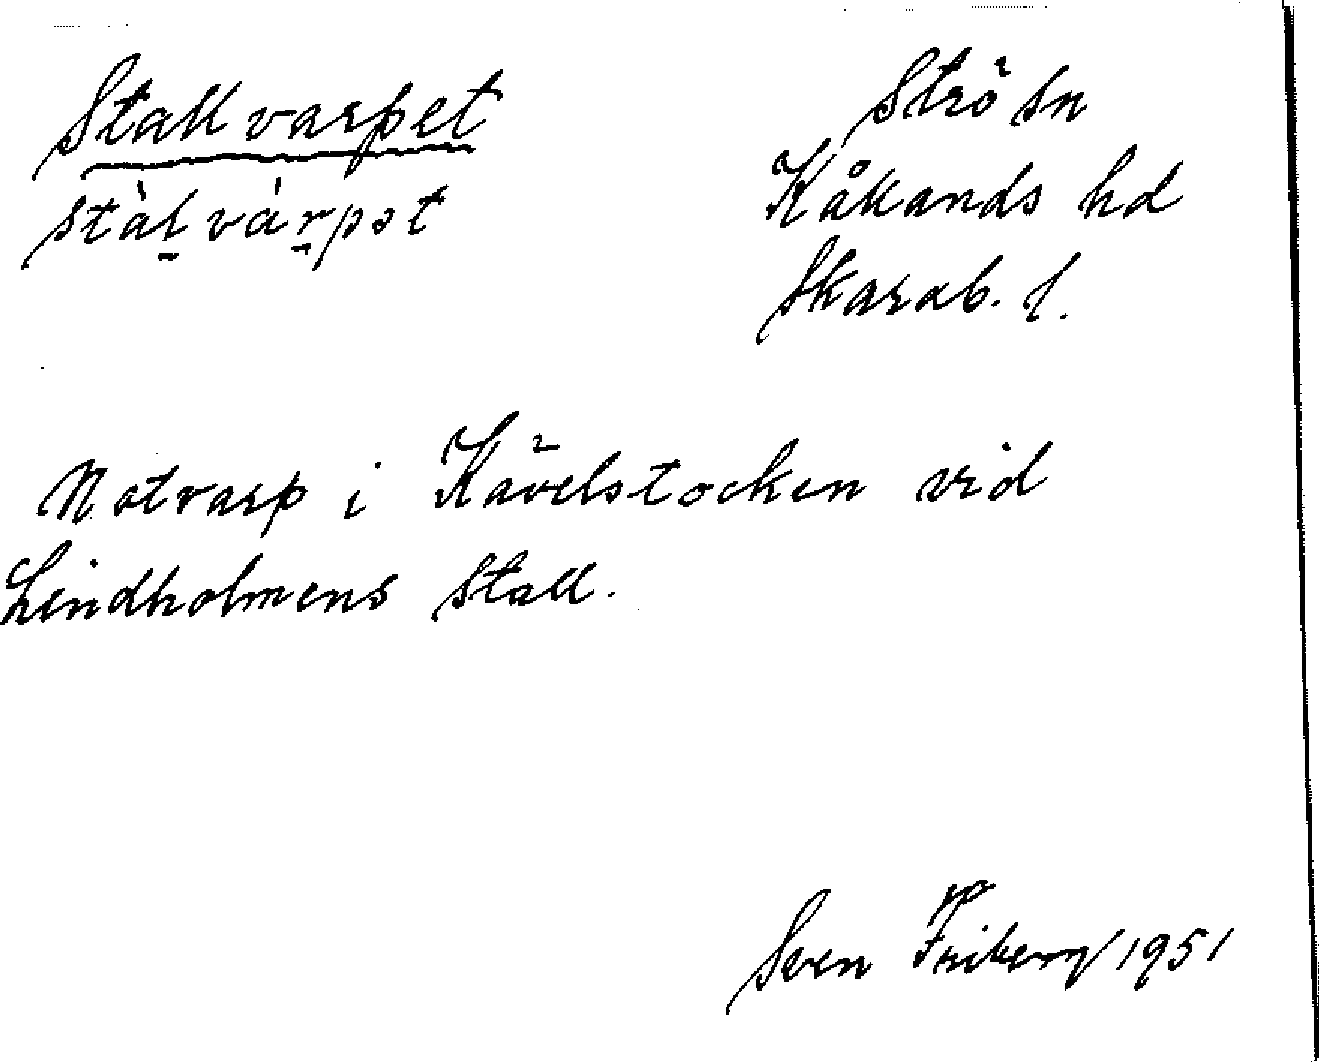 Stallvarpet
Strö sn
stàl̠vár̠pət
Kållands hd
Skarab. l.
Notvarp i Kävelstocken vid
Lindholmens stall.
Sven Friberg 1951